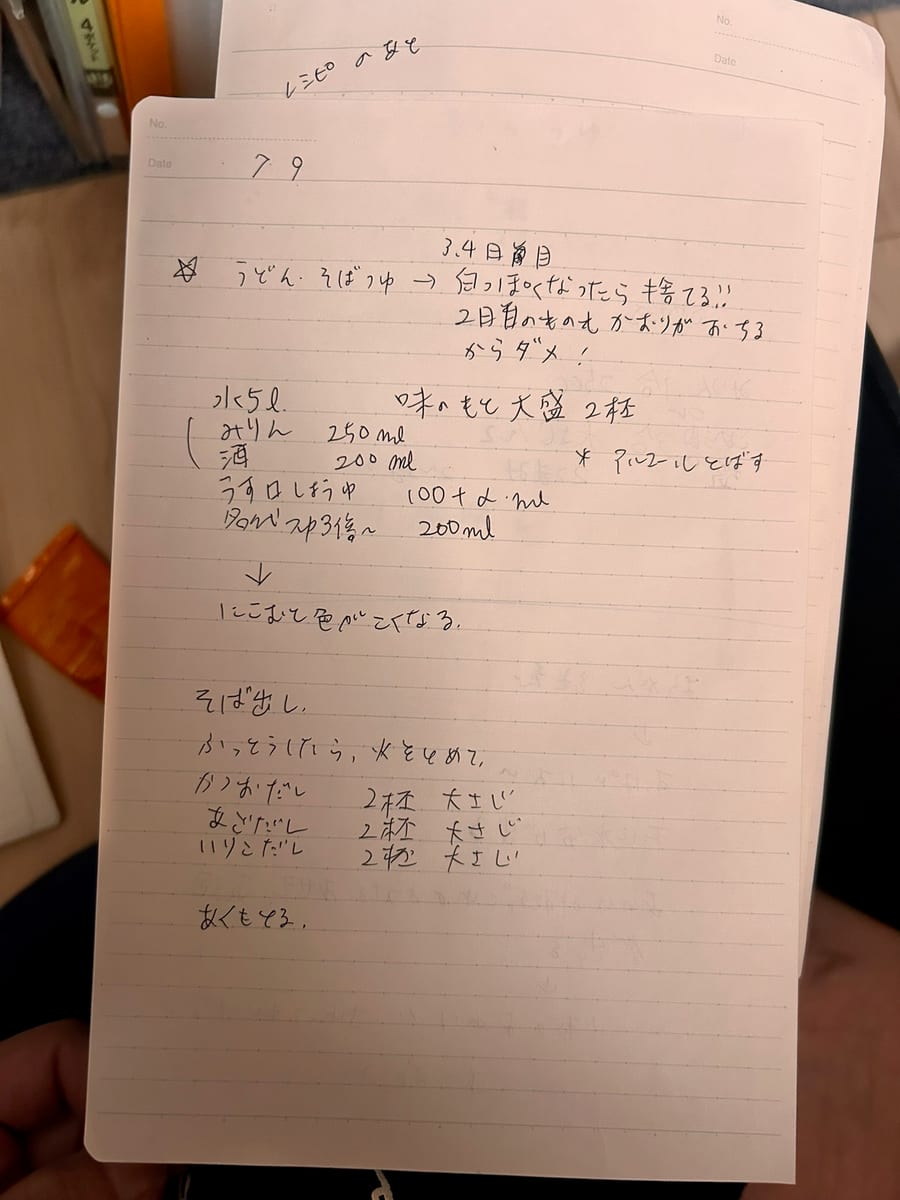 4
No.
Date
レシピのあと
No.
Date
7 9
3.4日目
☆ うどん・そばつゆ → 白っぽくなったら 捨てる!!
2日目のものも かおりが おちる
からダメ!
水 5l. 味のもと 大盛 2杯
みりん 250ml
酒 200ml * アルコールとばす
うす口しょうゆ 100+α・ml
つゆ3倍〜 200ml
↓
にこむと色がこくなる.
そば出し.
ふっとうしたら、火をとめて、
かつおだし 2杯 大さじ
あごだし 2杯 大さじ
いりこだし 2杯 大さじ
あくもとる.